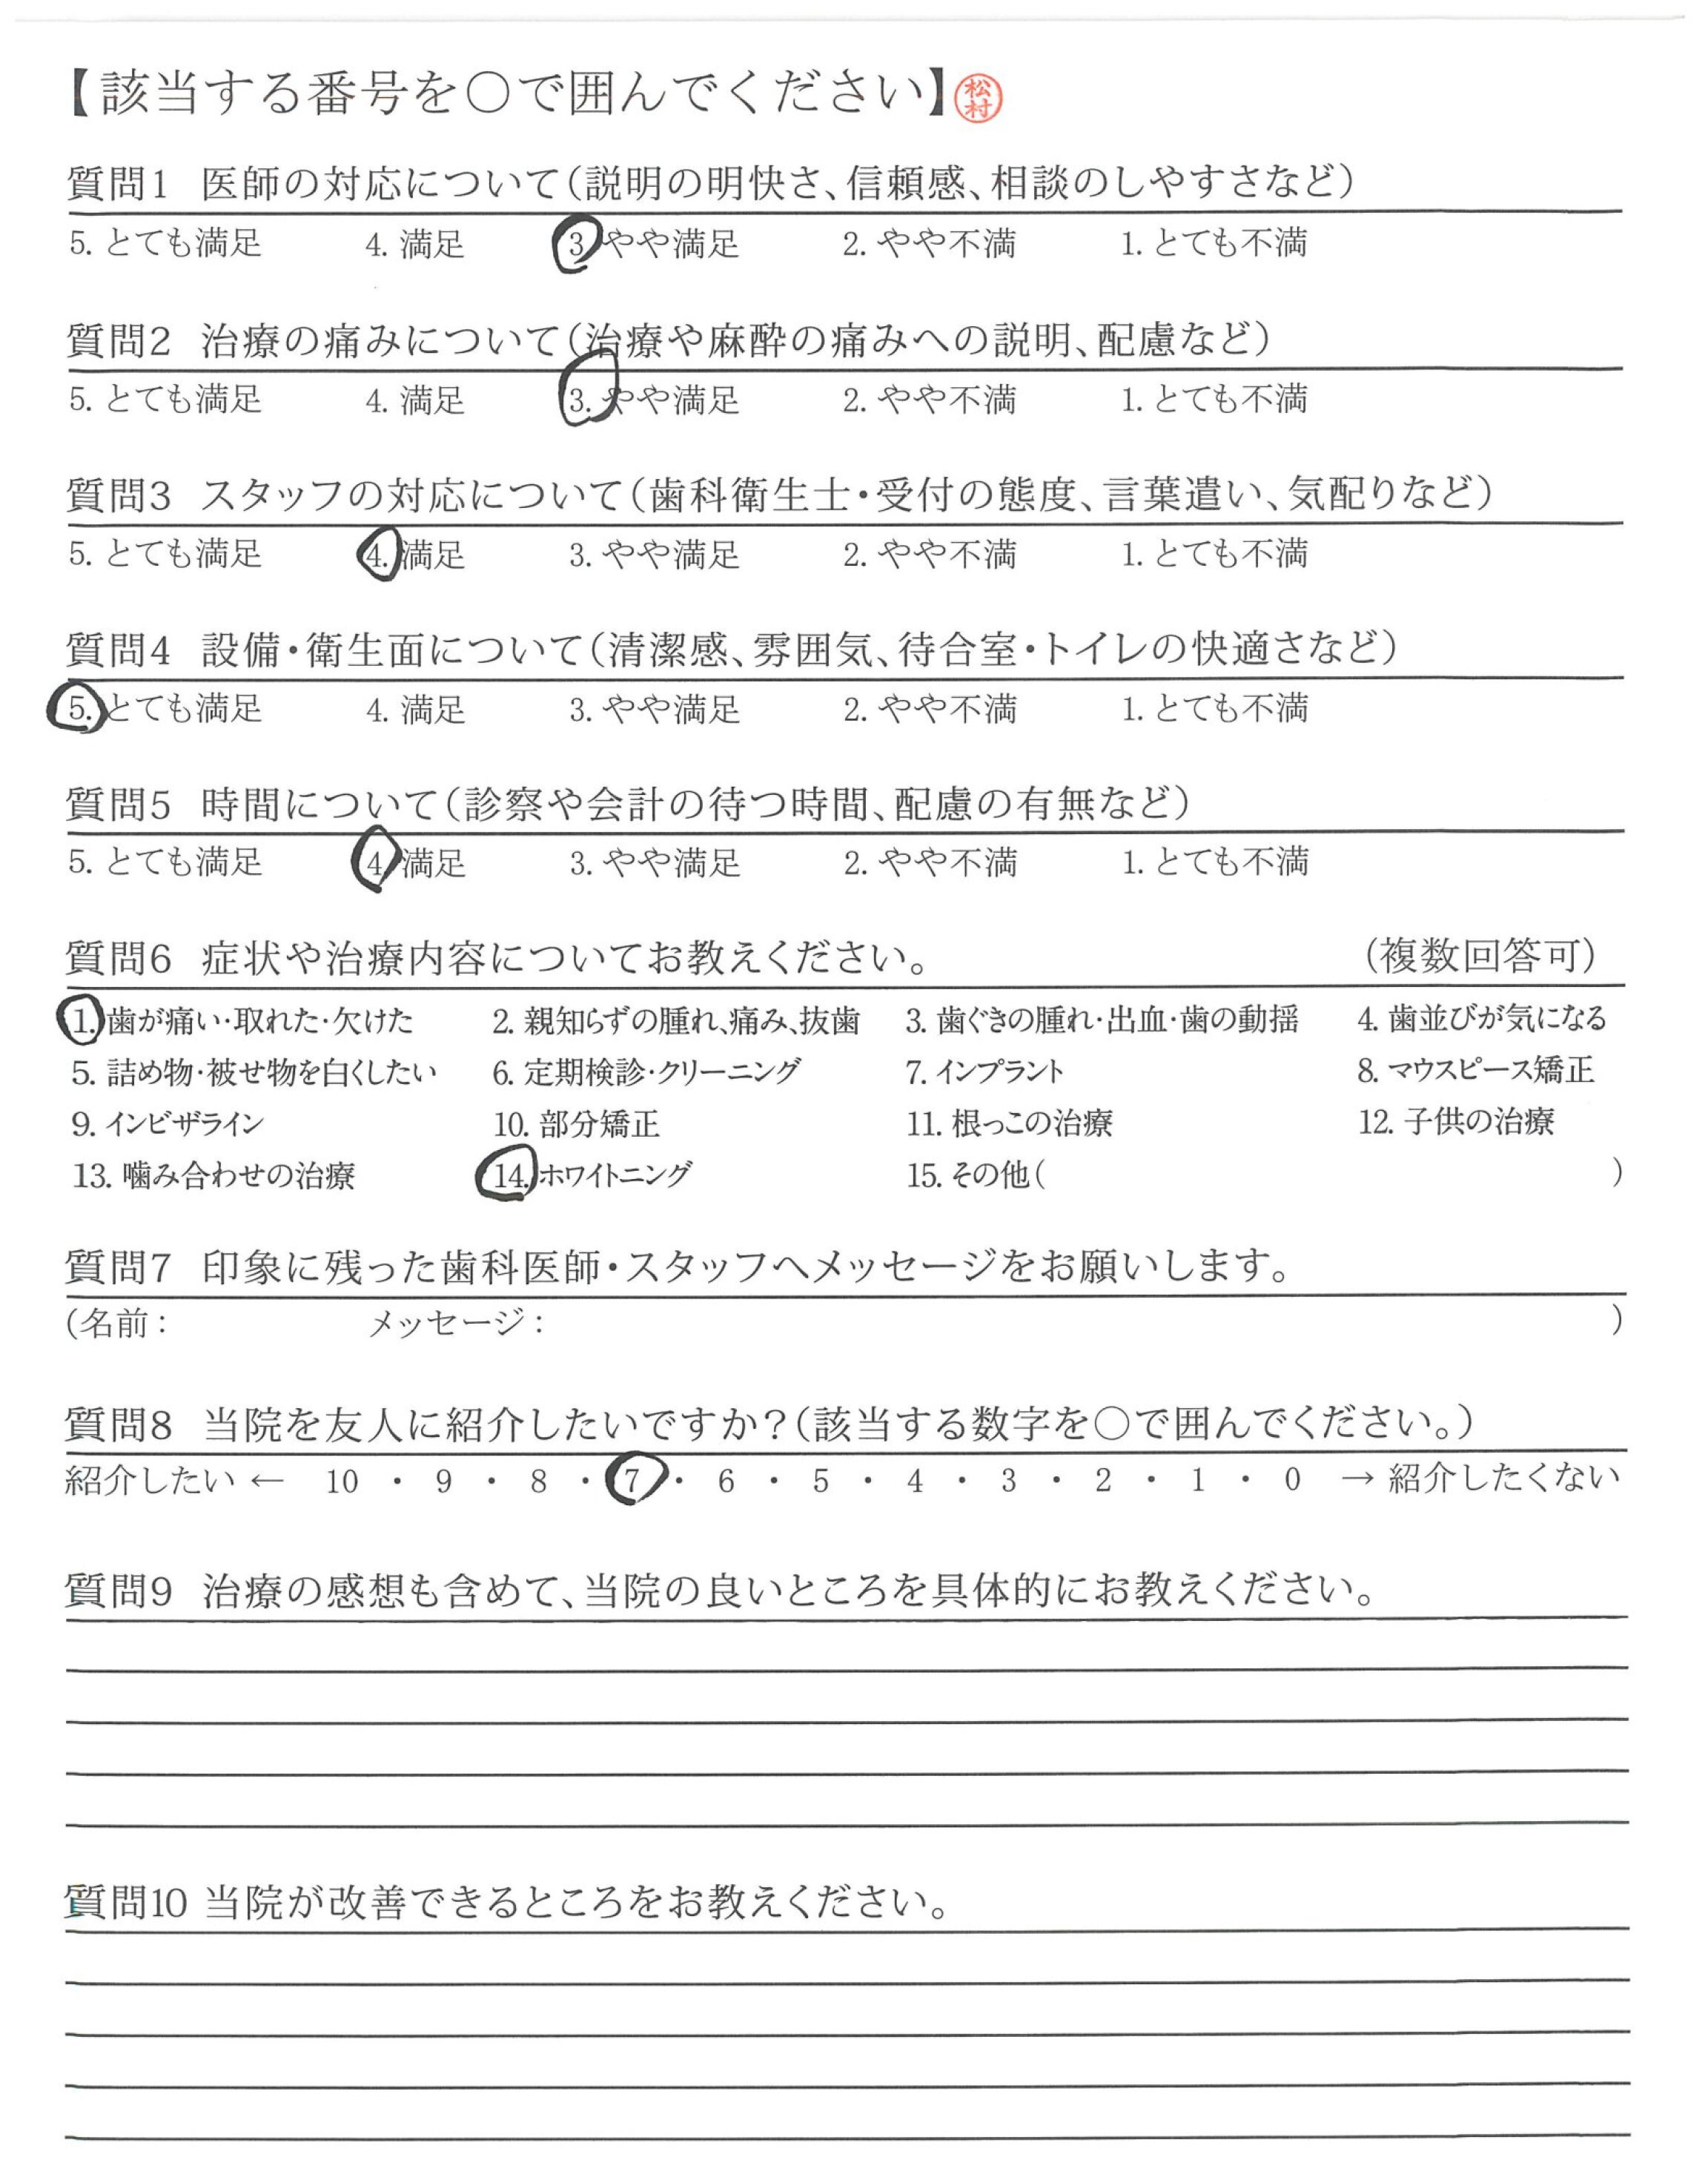 【該当する番号を○で囲んでください】松村
質問1 医師の対応について(説明の明快さ、信頼感、相談のしやすさなど)
5. とても満足 4. 満足 3. やや満足 2. やや不満 1. とても不満
質問2 治療の痛みについて(治療や麻酔の痛みへの説明、配慮など)
5. とても満足 4. 満足 3. やや満足 2. やや不満 1. とても不満
質問3 スタッフの対応について(歯科衛生士・受付の態度、言葉遣い、気配りなど)
5. とても満足 4. 満足 3. やや満足 2. やや不満 1. とても不満
質問4 設備・衛生面について(清潔感、雰囲気、待合室・トイレの快適さなど)
5. とても満足 4. 満足 3. やや満足 2. やや不満 1. とても不満
質問5 時間について(診察や会計の待つ時間、配慮の有無など)
5. とても満足 4. 満足 3. やや満足 2. やや不満 1. とても不満
質問6 症状や治療内容についてお教えください。 (複数回答可)
1. 歯が痛い・取れた・欠けた 2. 親知らずの腫れ、痛み、抜歯 3. 歯ぐきの腫れ・出血・歯の動揺 4. 歯並びが気になる
5. 詰め物・被せ物を白くしたい 6. 定期検診・クリーニング 7. インプラント 8. マウスピース矯正
9. インビザライン 10. 部分矯正 11. 根っこの治療 12. 子供の治療
13. 噛み合わせの治療 14. ホワイトニング 15. その他( )
質問7 印象に残った歯科医師・スタッフへメッセージをお願いします。
(名前: メッセージ: )
質問8 当院を友人に紹介したいですか?(該当する数字を○で囲んでください。)
紹介したい ← 10 ・ 9 ・ 8 ・ 7 ・ 6 ・ 5 ・ 4 ・ 3 ・ 2 ・ 1 ・ 0 → 紹介したくない
質問9 治療の感想も含めて、当院の良いところを具体的にお教えください。
質問10 当院が改善できるところをお教えください。